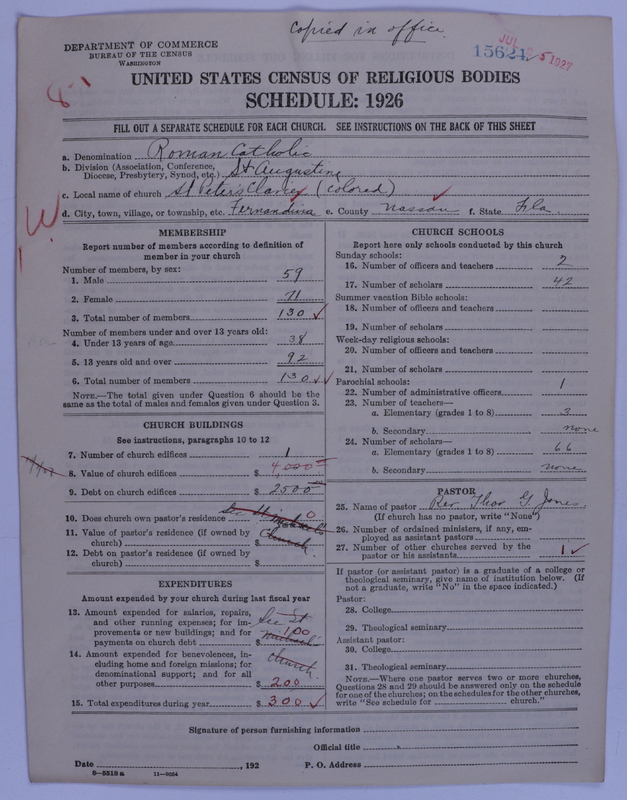 Copied in office
DEPARTMENT OF COMMERCE
BUREAU OF THE CENSUS
WASHINGTON
15624
JUL 5 1927
UNITED STATES CENSUS OF RELIGIOUS BODIES
SCHEDULE: 1926
FILL OUT A SEPARATE SCHEDULE FOR EACH CHURCH. SEE INSTRUCTIONS ON THE BACK OF THIS SHEET
a. Denomination Roman Catholic
b. Division (Association, Conference, Diocese, Presbytery, Synod, etc.) St Augustine
c. Local name of church St Peters Claver (colored)
d. City, town, village, or township, etc. Fernandina e. County Nassau f. State Fla.
MEMBERSHIP
Report number of members according to definition of
member in your church
Number of members, by sex:
1. Male 59
2. Female 71
3. Total number of members 130
Number of members under and over 13 years old:
4. Under 13 years of age 38
5. 13 years old and over 92
6. Total number of members 130
NOTE.—The total given under Question 6 should be
same as the total of males and females given under Question 3.
CHURCH BUILDINGS
See instructions, paragraphs 10 to 12
7. Number of church edifices 1
8. Value of church edifices $ 4,000
9. Debt on church edifices $ 2500
10. Does church own pastor's residence See St Michael's 0
11. Value of pastor's residence (if owned by
church) $ Church
12. Debt on pastor's residence (if owned by
church) $
EXPENDITURES
Amount expended by your church during last fiscal year
13. Amount expended for salaries, repairs,
and other running expenses; for im-
provements or new buildings; and for
payments on church debt $ See St Michael 100
14. Amount expended for benevolences, in-
cluding home and foreign missions; for
denominational support; and for all
other purposes $ Church 200
15. Total expenditures during year $ 300
CHURCH SCHOOLS
Report here only schools conducted by this church
Sunday schools:
16. Number of officers and teachers 2
17. Number of scholars 42
Summer vacation Bible schools:
18. Number of officers and teachers
19. Number of scholars
Week-day religious schools:
20. Number of officers and teachers
21. Number of scholars
Parochial schools:
22. Number of administrative officers 1
23. Number of teachers—
a. Elementary (grades 1 to 8) 3
b. Secondary none
24. Number of scholars—
a. Elementary (grades 1 to 8) 66
b. Secondary none
PASTOR
25. Name of pastor Rev Thos G Jones
(If church has no pastor, write "None")
26. Number of ordained ministers, if any, em-
ployed as assistant pastors
27. Number of other churches served by the
pastor or his assistants 1
If pastor (or assistant pastor) is a graduate of a college or
theological seminary, give name of institution below. (If
not a graduate, write "No" in the space indicated.)
Pastor:
28. College
29. Theological seminary
Assistant pastor:
30. College
31. Theological seminary
NOTE.—Where one pastor serves two or more churches,
Questions 28 and 29 should be answered only on the schedule
for one of the churches; on the schedules for the other churches,
write "See schedule for church."
Signature of person furnishing information
Official title
Date , 192 P. O. Address
8—5518 a 11—9054